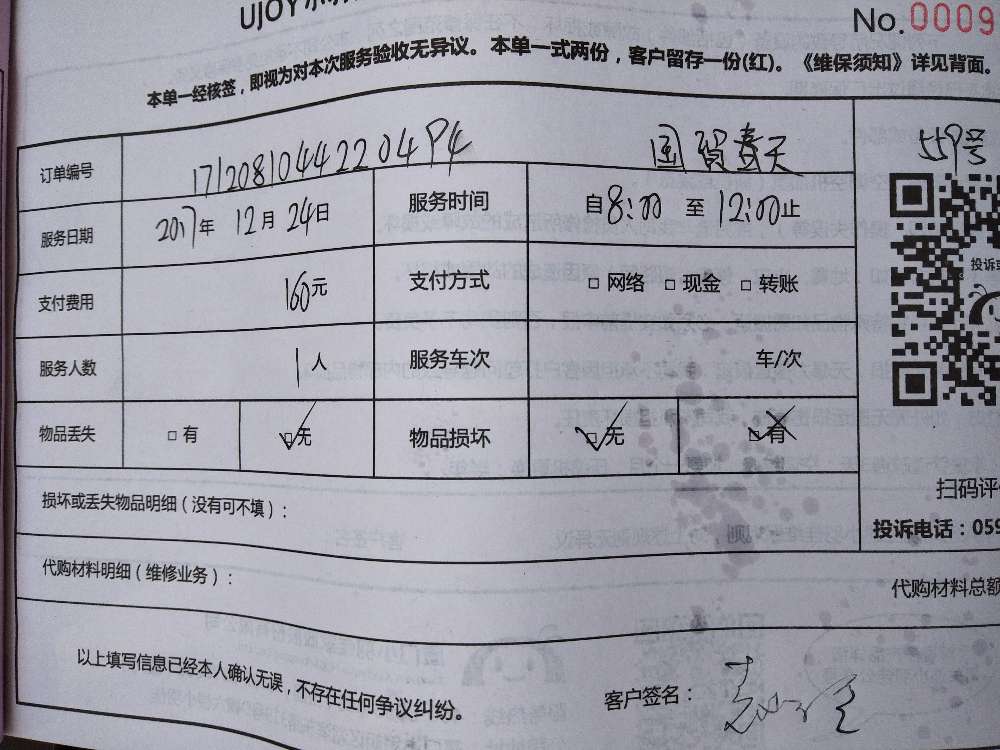 UJOY
No.0009
本单一经核签，即视为对本次服务验收无异议。本单一式两份，客户留存一份(红)。《维保须知》详见背面。
订单编号 17120810442204P4 国贸春天 559号
服务日期 2017年 12月 24日 服务时间 自8:00 至 12:00止
支付费用 160元 支付方式 □ 网络 □ 现金 □ 转账
投诉或
服务人数 1人 服务车次 车/次
物品丢失 □ 有 □无 物品损坏 □无 □ 有
扫码评
损坏或丢失物品明细（没有可不填）：
投诉电话：059
代购材料明细（维修业务）：
代购材料总额
以上填写信息已经本人确认无误，不存在任何争议纠纷。
客户签名：